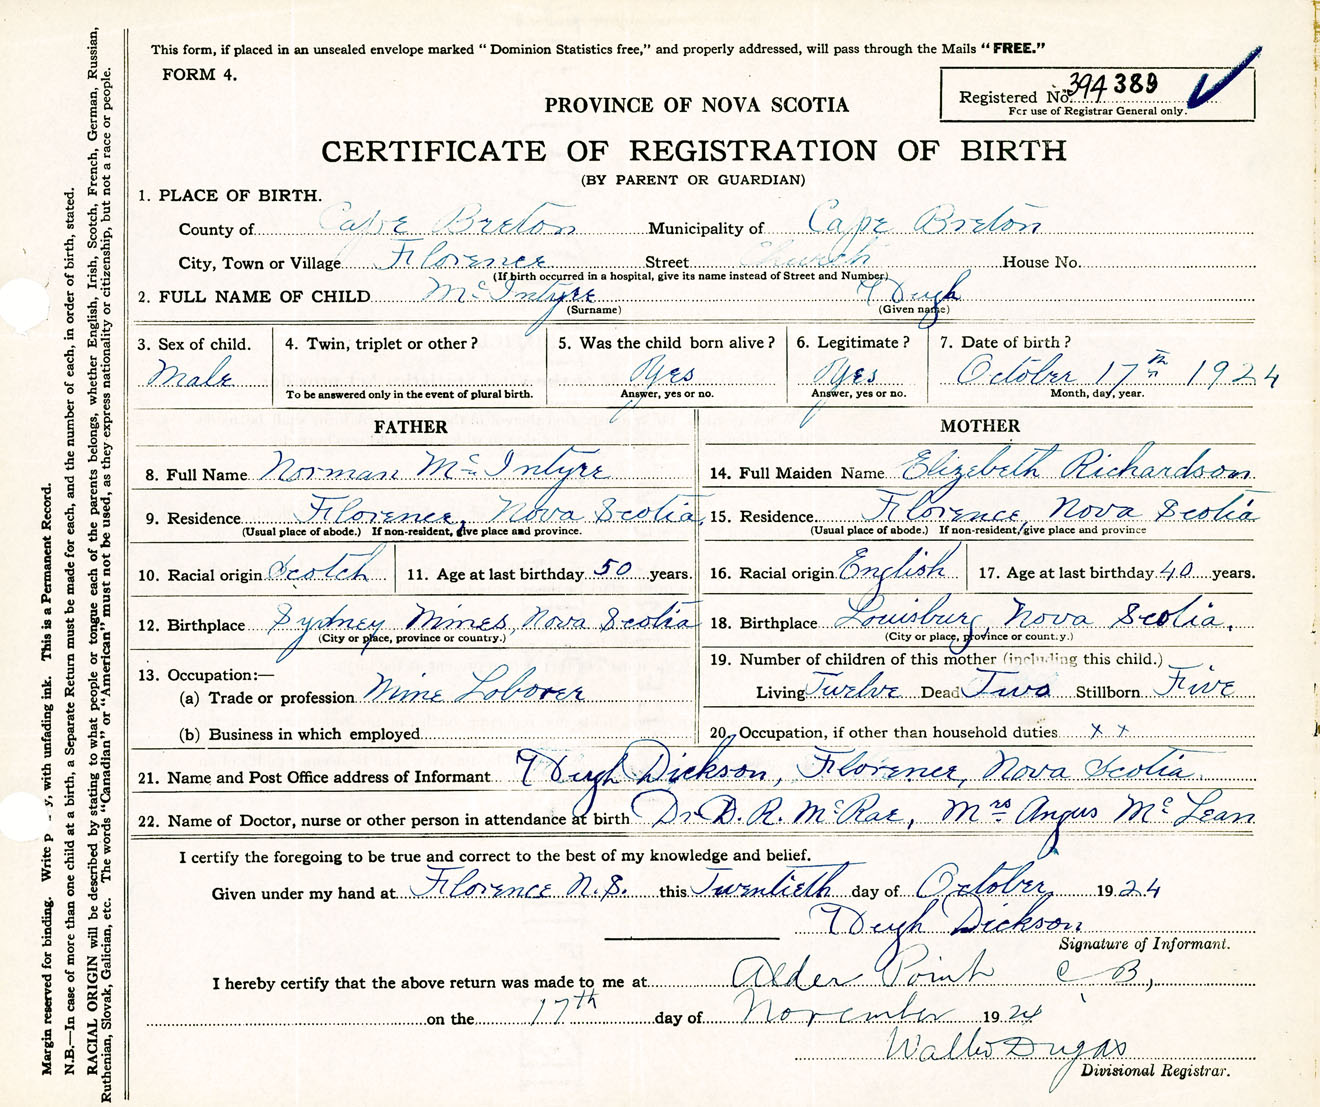 This form, if placed in an unsealed envelope marked "Dominion Statistics free," and properly addressed, will pass through the Mails "FREE."
FORM 4.
Registered No. 394 389
For use of Registrar General only.
PROVINCE OF NOVA SCOTIA
CERTIFICATE OF REGISTRATION OF BIRTH
(BY PARENT OR GUARDIAN)
1. PLACE OF BIRTH.
County of Cape Breton Municipality of Cape Breton
City, Town or Village Florence Street Church House No.
(If birth occurred in a hospital, give its name instead of Street and Number)
2. FULL NAME OF CHILD McIntyre Hugh
(Surname) (Given name)
3. Sex of child. 4. Twin, triplet or other? 5. Was the child born alive? 6. Legitimate? 7. Date of birth?
Male Yes Yes October 17th 1924
To be answered only in the event of plural birth. Answer, yes or no. Answer, yes or no. Month, day, year.
FATHER MOTHER
8. Full Name Norman McIntyre 14. Full Maiden Name Elizebeth Richardson
9. Residence Florence, Nova Scotia, 15. Residence Florence, Nova Scotia
(Usual place of abode.) If non-resident, give place and province. (Usual place of abode.) If non-resident/give place and province
10. Racial origin Scotch 11. Age at last birthday 50 years. 16. Racial origin English 17. Age at last birthday 40 years.
12. Birthplace Sydney Mines, Nova Scotia 18. Birthplace Louisburg, Nova Scotia.
(City or place, province or country.) (City or place, province or count.y.)
13. Occupation:— 19. Number of children of this mother (including this child.)
(a) Trade or profession Mine Loborer Living Twelve Dead Two Stillborn Five
(b) Business in which employed 20. Occupation, if other than household duties x x
21. Name and Post Office address of Informant Hugh Dickson, Florence, Nova Scotia.
22. Name of Doctor, nurse or other person in attendance at birth Dr. B. R. McRae, Mrs Angus McLean
I certify the foregoing to be true and correct to the best of my knowledge and belief.
Given under my hand at Florence N.S. this Twentieth day of October 1924
Hugh Dickson
Signature of Informant.
I hereby certify that the above return was made to me at Alder Point C B,
on the 17th day of November 1924
Dugas
Divisional Registrar.
Margin reserved for binding. Write p y, with unfading ink. This is a Permanent Record.
N.B.—In case of more than one child at a birth, a Separate Return must be made for each, and the number of each, in order of birth, stated.
RACIAL ORIGIN will be described by stating to what people or tongue each of the parents belongs, whether English, Irish, Scotch, French, German, Russian,
Ruthenian, Slovak, Galician, etc. The words "Canadian" or "American" must not be used, as they express nationality or citizenship, but not a race or people.